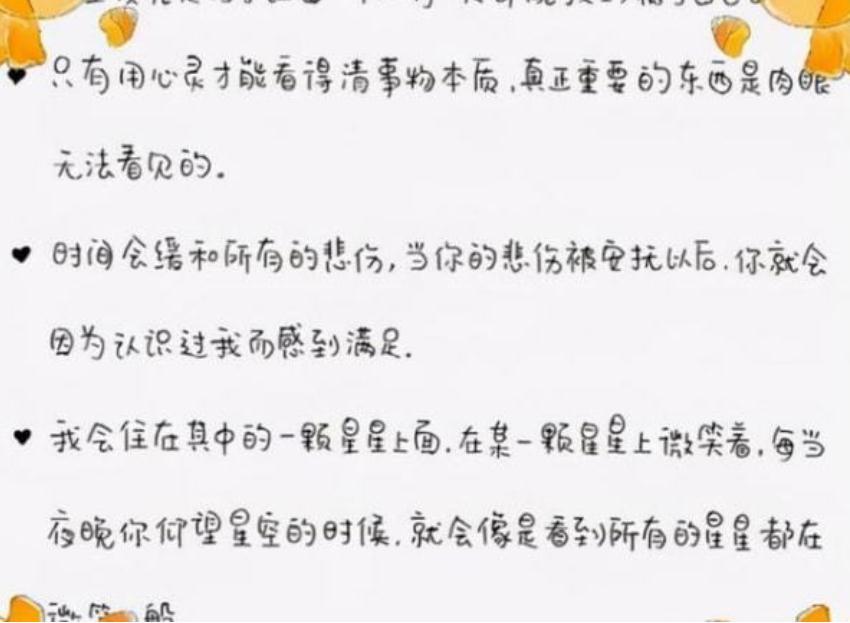 只有用心灵才能看得清事物本质,真正重要的东西是肉眼
无法看见的。
时间会缓和所有的悲伤,当你的悲伤被安抚以后.你就会
因为认识过我而感到满足.
我会住在其中的一颗星星上面.在某一颗星星上微笑着,每当
夜晚你仰望星空的时候.就会像是看到所有的星星都在
微笑一般